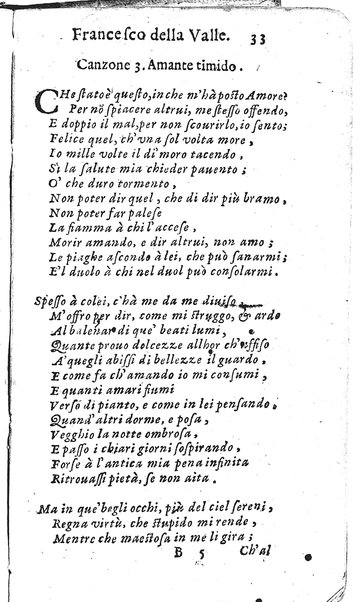 Francesco della Valle. 33
Canzone 3. Amante timido.
CHe stato è questo, in che m'hà posto Amore?
Per nõ spiacere altrui, me stesso offendo,
E doppio il mal, per non scourirlo, io sento;
Felice quel, ch'vna sol volta more,
Io mille volte il dì moro tacendo,
Sì la salute mia chieder pauento;
O' che duro tormento,
Non poter dir quel, che di dir più bramo,
Non poter far palese
La fiamma à chi l'accese,
Morir amando, e dir altrui, non amo;
Le piaghe ascondo à lei, che può sanarmi;
E'l duolo à chi nel duol può consolarmi.
Spesso à colei, c'hà me da me diuiso
M'offro per dir, come mi struggo, & ardo
Al balenar di que' beati lumi,
Quante prouo dolcezze allhor ch'affiso
A' quegli abissi di bellezze il guardo.
E come fa ch'amando io mi consumi,
E quanti amari fiumi
Verso di pianto, e come in lei pensando.
Quand'altri dorme, e posa,
Vegghio la notte ombrosa,
E passo i chiari giorni sospirando,
Forse à l'antica mia pena infinita
Ritrouassi pietà, se non aita.
Ma in que' begli occhi, più del ciel sereni,
Regna virtù, che stupido mi rende,
Mentre che maestosa in me li gira;
B 5 Ch'al